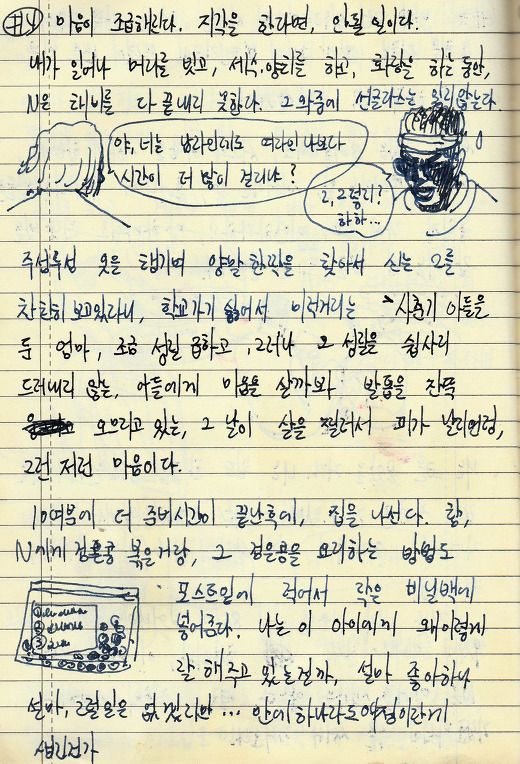 #4 마음이 조급해진다. 지각을 한다면, 안될 일이다.
내가 일어나 머리를 빗고, 세수.양치를 하고, 화장을 하는 동안,
N은 채비를 다 끝내지 못한다. 그 와중에 선글라스는 잊지않는다.
야, 너는 남자인데도 여자인 나보다
시간이 더 많이 걸리냐?
그, 그렇지?
하하...
주섬주섬 옷을 챙기며 양말 한짝을 찾아서 신는 그를
찬찬히 보고있자니, 학교가기 싫어서 미적거리는 사춘기 아들을
둔 엄마, 조금 성질 급하고, 그러나 그 성질을 쉽사리
드러내지 않는, 아들에게 미움을 살까봐 발톱을 잔뜩
오므리고 있는, 그 날이 살을 찔러서 피가 날지언정,
그런 저런 마음이다.
10여분에 더 준비시간이 끝난후에, 집을 나선다. 참,
N에게 검은콩 볶은거랑, 그 검은콩을 요리하는 방법도
포스트잇에 적어서 작은 비닐백에
넣어준다. 나는 이 아이에게 왜이렇게
잘 해주고 있는걸까, 설마 좋아하나
설마, 그럴일은 없겠지만... 안에 하나라도
생긴건가